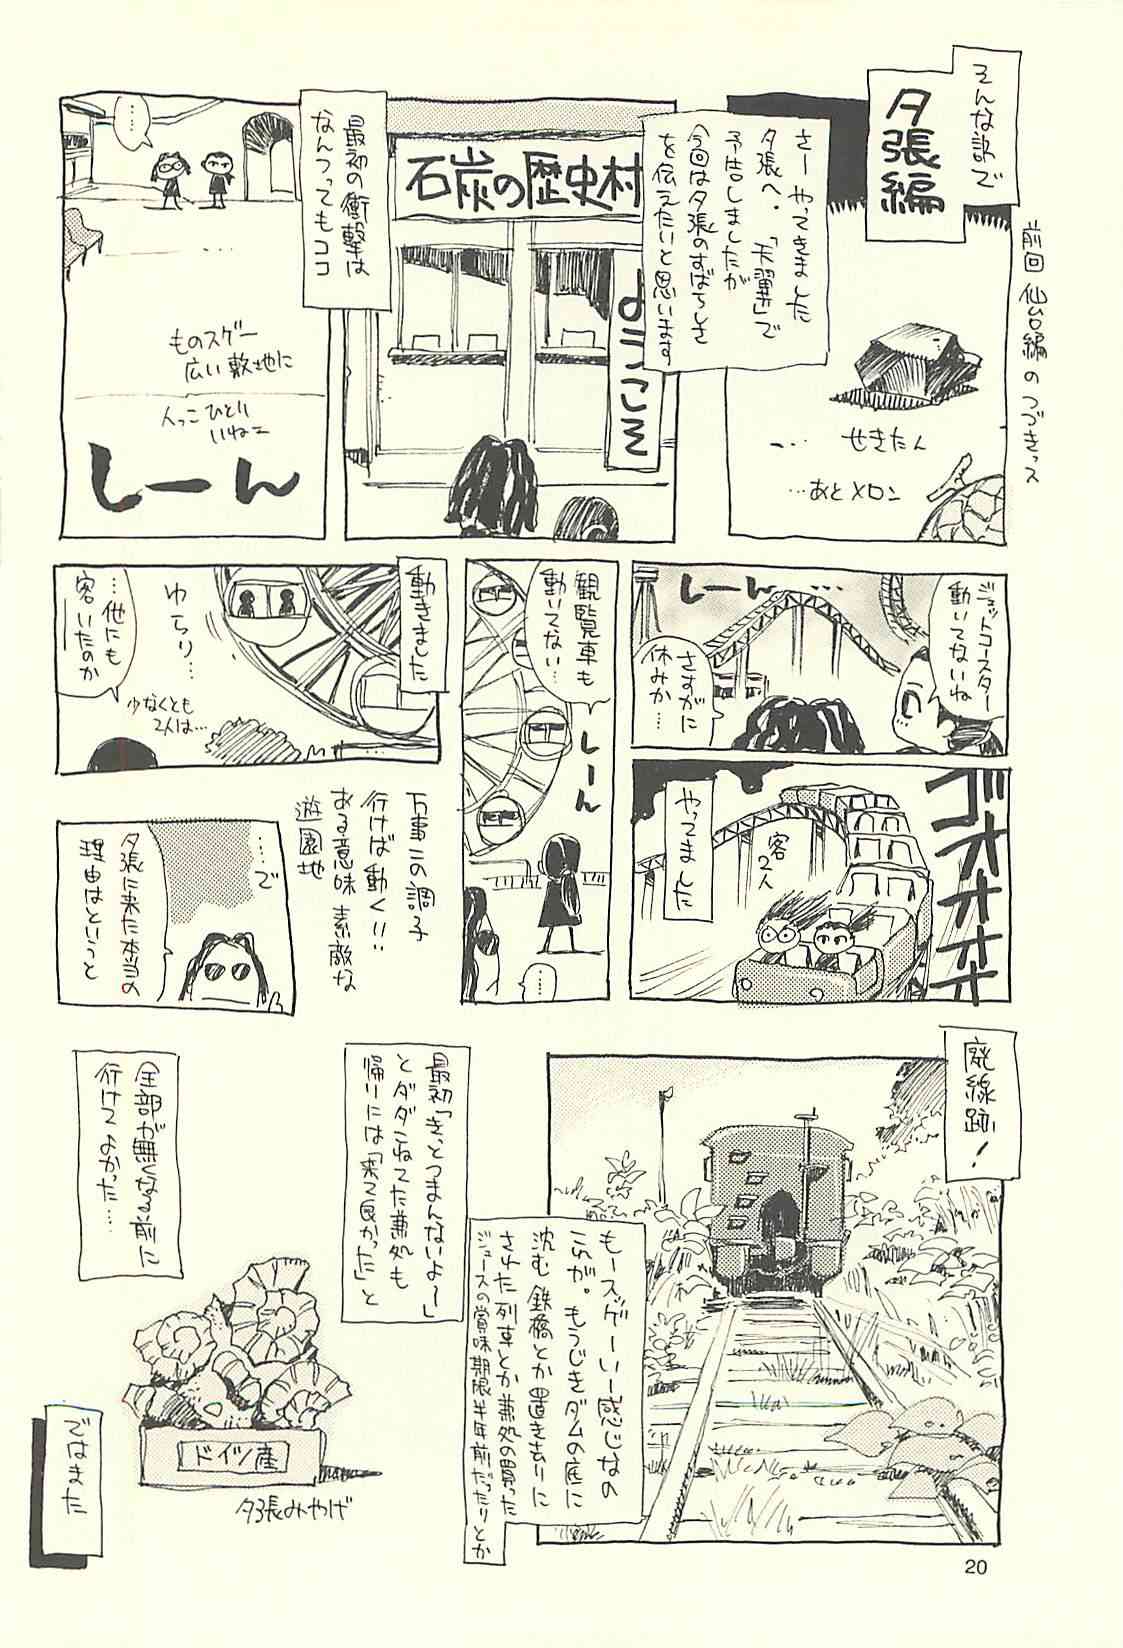 そんな訳で
夕張編
前回仙台編のつづきっス
さーやってきました
夕張へ。「天翼」で
予告しましたが
今回は夕張のすばらしさ
を伝えたいと思います
せきたん
…あとメロン
石炭の歴史村
ようこそ
最初の衝撃は
なんつってもココ
……
ものスゲー
広い敷地に
人っこひとり
いねェ
しーん
ジェットコースター
動いてないね
しーん…
さすがに
休みか…
ゴオオオオ
やってました
客2人
観覧車も
動いてない…
しーん
……
動きました
ゆらり…
…他にも
客いたのか
少なくとも
2人は…
万事この調子
行けば動く!!
ある意味素敵な
遊園地
…で
夕張に来た本当の
理由はというと
廃線跡!
もースッゲーいー感じなの
これが。もうじきダムの底に
沈む鉄橋とか置き去りに
された列車とか兼処の買った
ジュースの賞味期限半年前だったりとか
最初「きっとつまんないよ〜」
とダダこねてた兼処も
帰りには「来て良かった」と
全部が無くなる前に
行けてよかった…
ドイツ産
夕張みやげ
ではまた
20